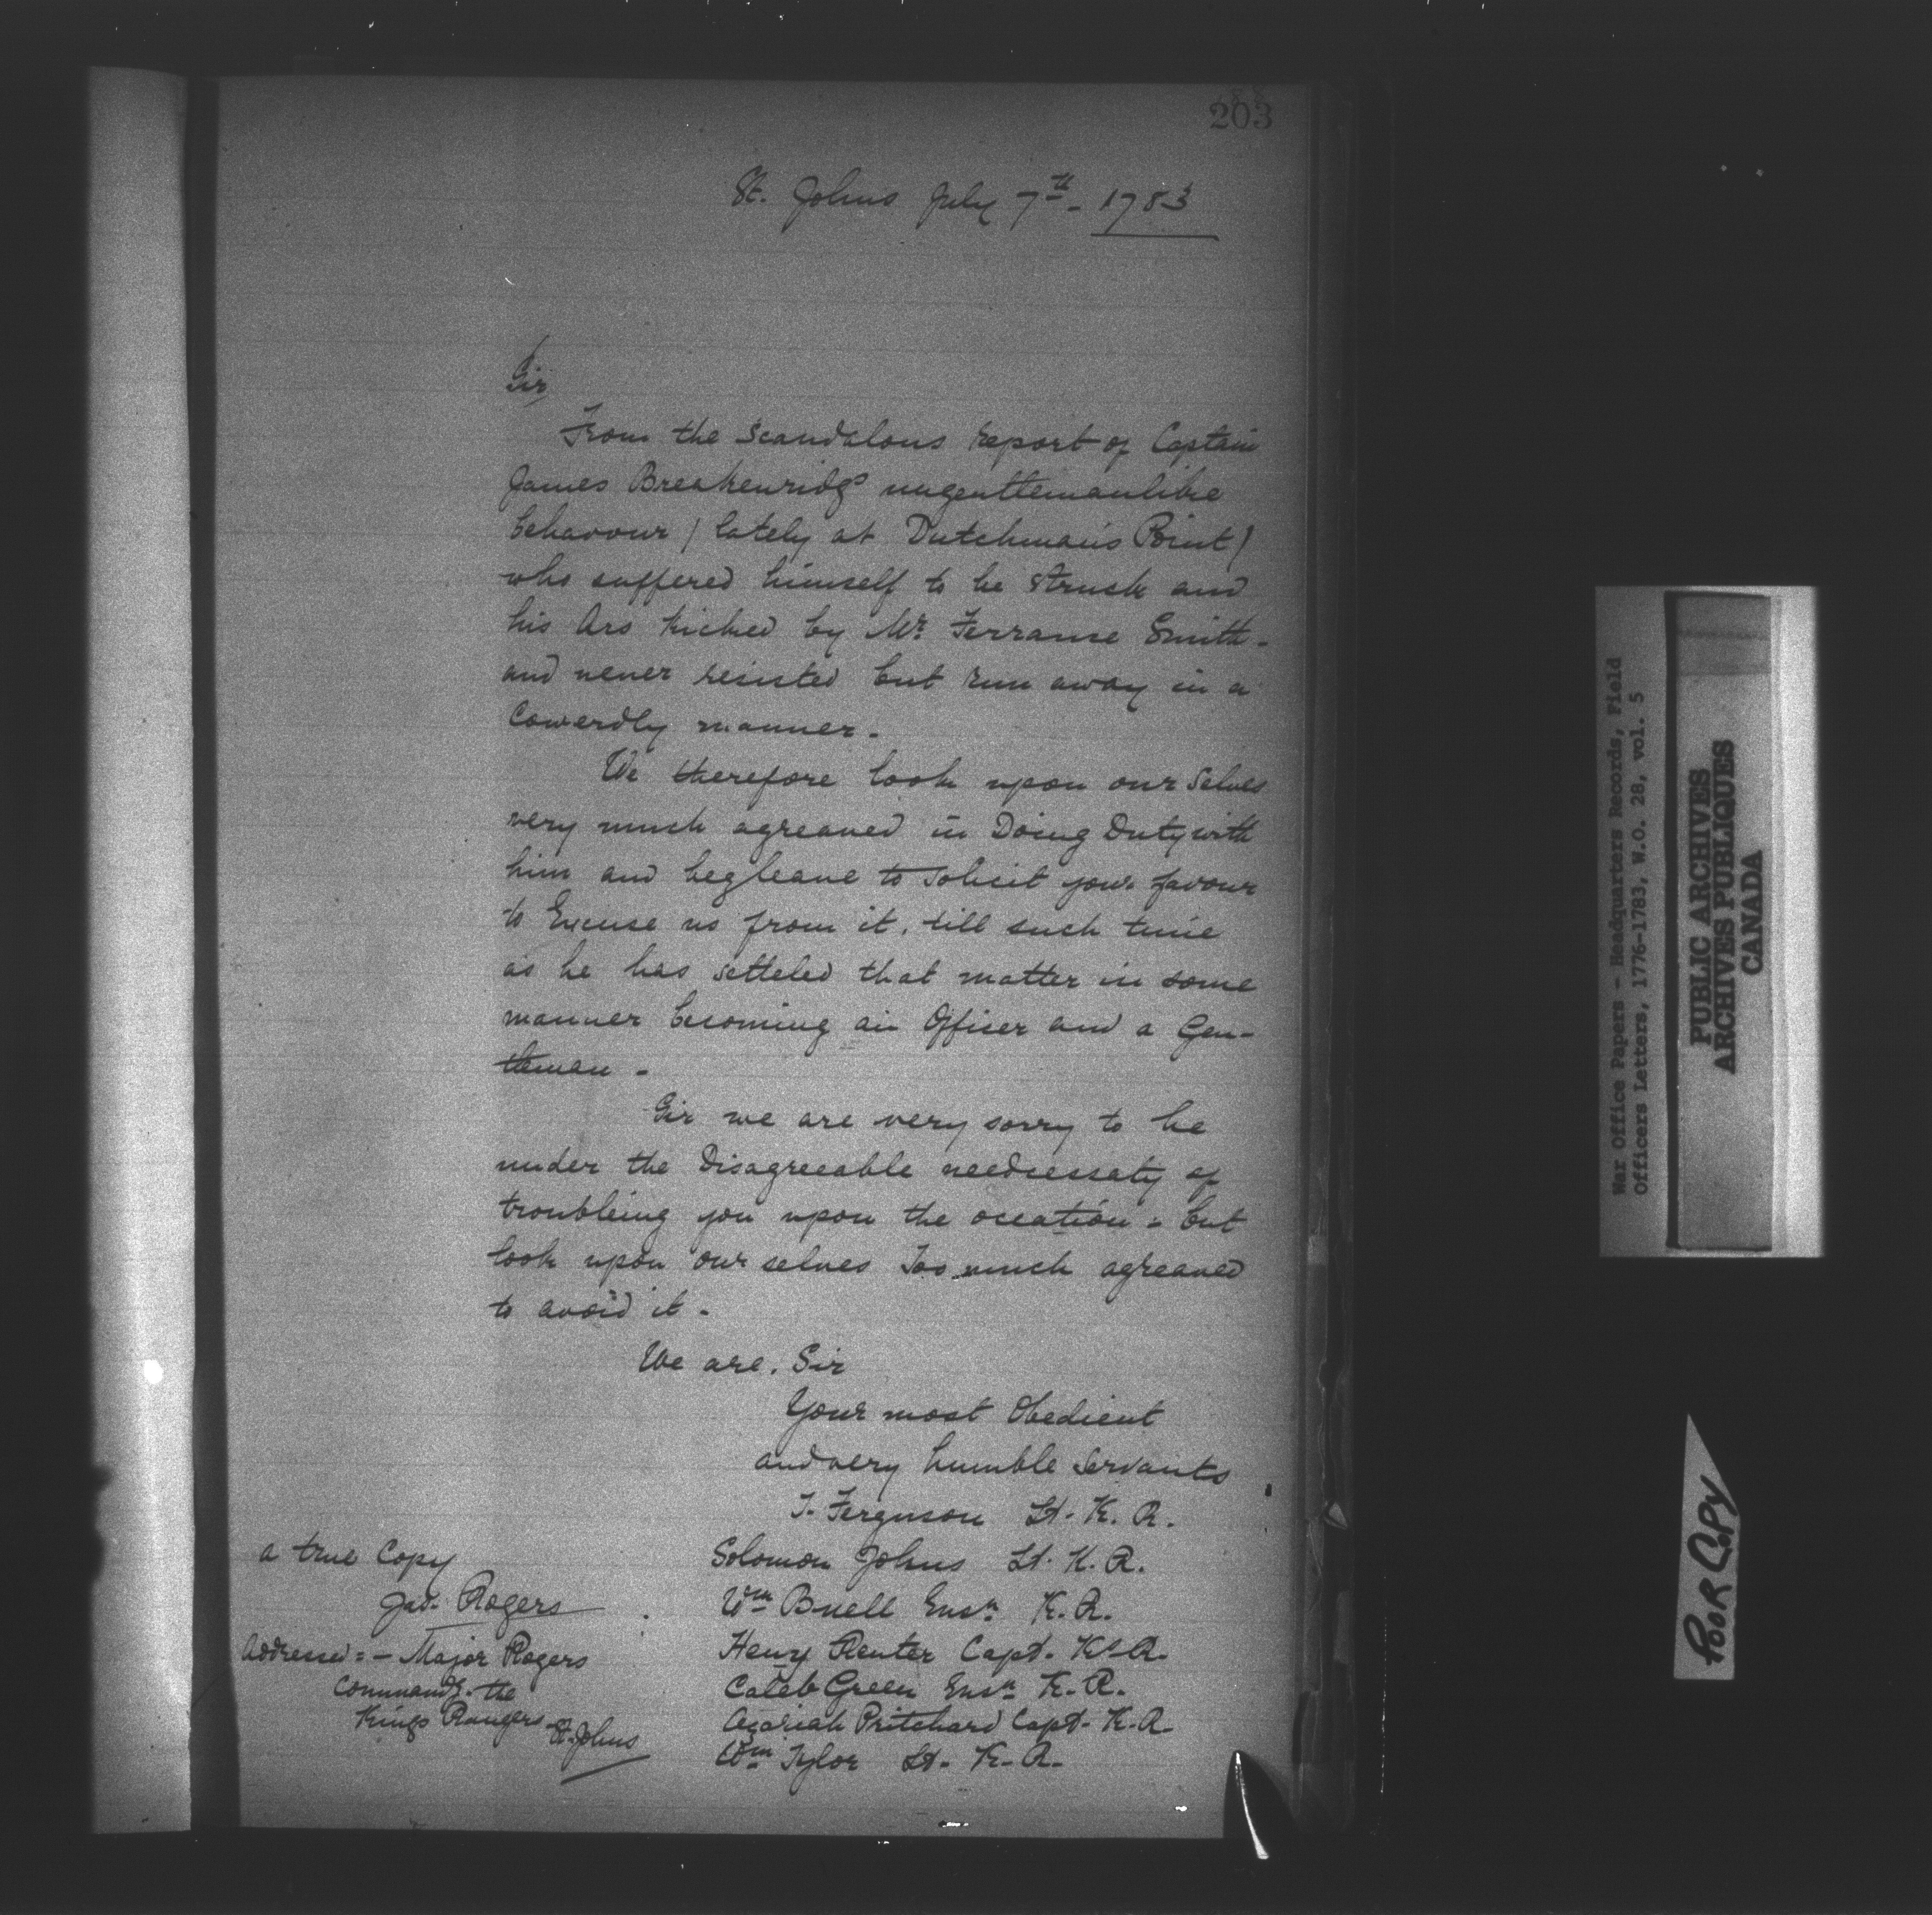 203
St. Johns July 7th - 1783
Sir
From the Scandalous report of Captain
James Breakenridgs ungentlemanlike
behavour / lately at Dutchman's Point /
who suffered himself to be struck and
his Ars kicked by Mr. Ferranse Smith -
and never resisted but run away in a
Cowerdly manner -
We therefore look upon our Selves
very much agreaved in Doing Duty with
him and beg leave to solicit your favour
to Excuse us from it, till such time
as he has setteled that matter in some
manner becoming an Officer and a Gen-
tleman -
Sir we are very sorry to be
under the Disagreeable needsessaty of
troubleing you upon the ocation - but
look upon our selves Too much agreaved
to avoid it -
We are, Sir
Your most Obedient
and very humble Servants
J. Ferguson Lt. K. R.
Solomon Johns Lt. K. R.
Wm Buell Ensn K. R.
Henry Ruiter Capt. Ks R.
Caleb Green Ensn K. R.
Azariah Pritchard Capt. K. R.
Wm Tylor Lt. K. R.
a true Copy
Jas. Rogers
Addressed = - Major Rogers
Commandg. the
Kings Rangers
St. Johns
War Office Papers - Headquarters Records, Field
Officers Letters, 1776-1783, W.O. 28, vol. 5
PUBLIC ARCHIVES
ARCHIVES PUBLIQUES
CANADA
POOR COPY